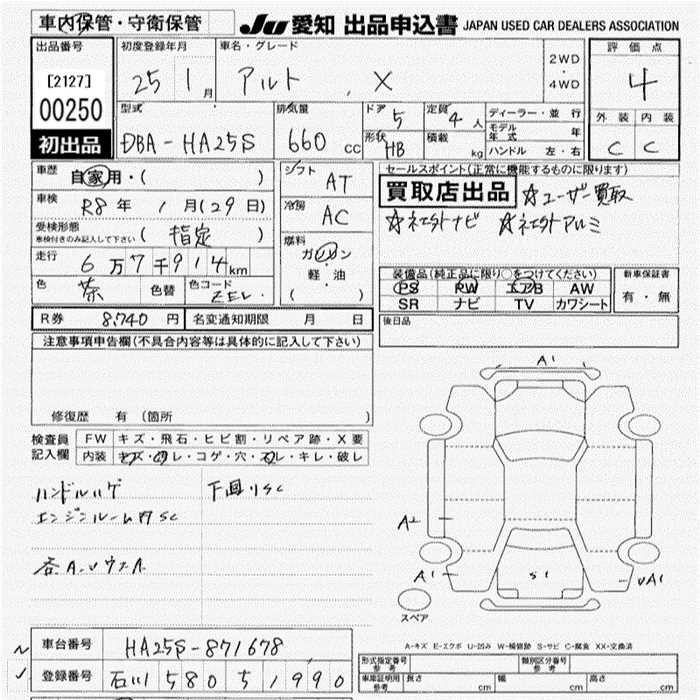 車内保管・守衛保管 JU 愛知 出品申込書 JAPAN USED CAR DEALERS ASSOCIATION
出品番号 初度登録年月 車名・グレード 評価点
[2127] 25 1月 アルト X 2WD・4WD 4
00250 型式 排気量 ドア 5 定員 4人 ディーラー・並行 外装 内装
初出品 DBA-HA25S 660 cc 形状 HB 積載 kg モデル年式 年 ハンドル 左・右 C C
車歴 自家用・( ) シフト AT セールスポイント(正常に機能するものに限ります)
車検 R8年 1月(29日) 冷房 AC 買取店出品 ☆ユーザー買取
受検形態 車検付きのみ記入して下さい ( 指定 ) 燃料 ☆ネエクトナビ ☆ネエクトアルミ
走行 6万7千914km ガソリン・軽油 ( )
色 茶 色替 色コード ZEV. 装備品(純正品に限り○をつけてください) 新車保証書
PS PW エアB AW 有・無
SR ナビ TV カワシート
R券 8,740円 名変通知期限 月 日 後日品
注意事項申告欄(不具合内容等は具体的に記入して下さい)
修復歴 有 (箇所 )
検査員記入欄 FW キズ・飛石・ヒビ割・リペア跡・X要
内装 キズ・汚レ・コゲ・穴・スレ・キレ・破レ
ハンドルハゲ 下回りSC
エンジンルーム内SC
各A.ウスA
A1
A2
A1 S1 UA1
スペア
A-キズ E-エクボ U-凹み W-補修跡 S-サビ C-腐食 XX-交換済
車台番号 HA25S-871678
登録番号 石川 580 ち 1990
形式指定番号 参考 類別区分番号 参考
車庫証明用 参考 長さ cm 幅 cm 高さ cm